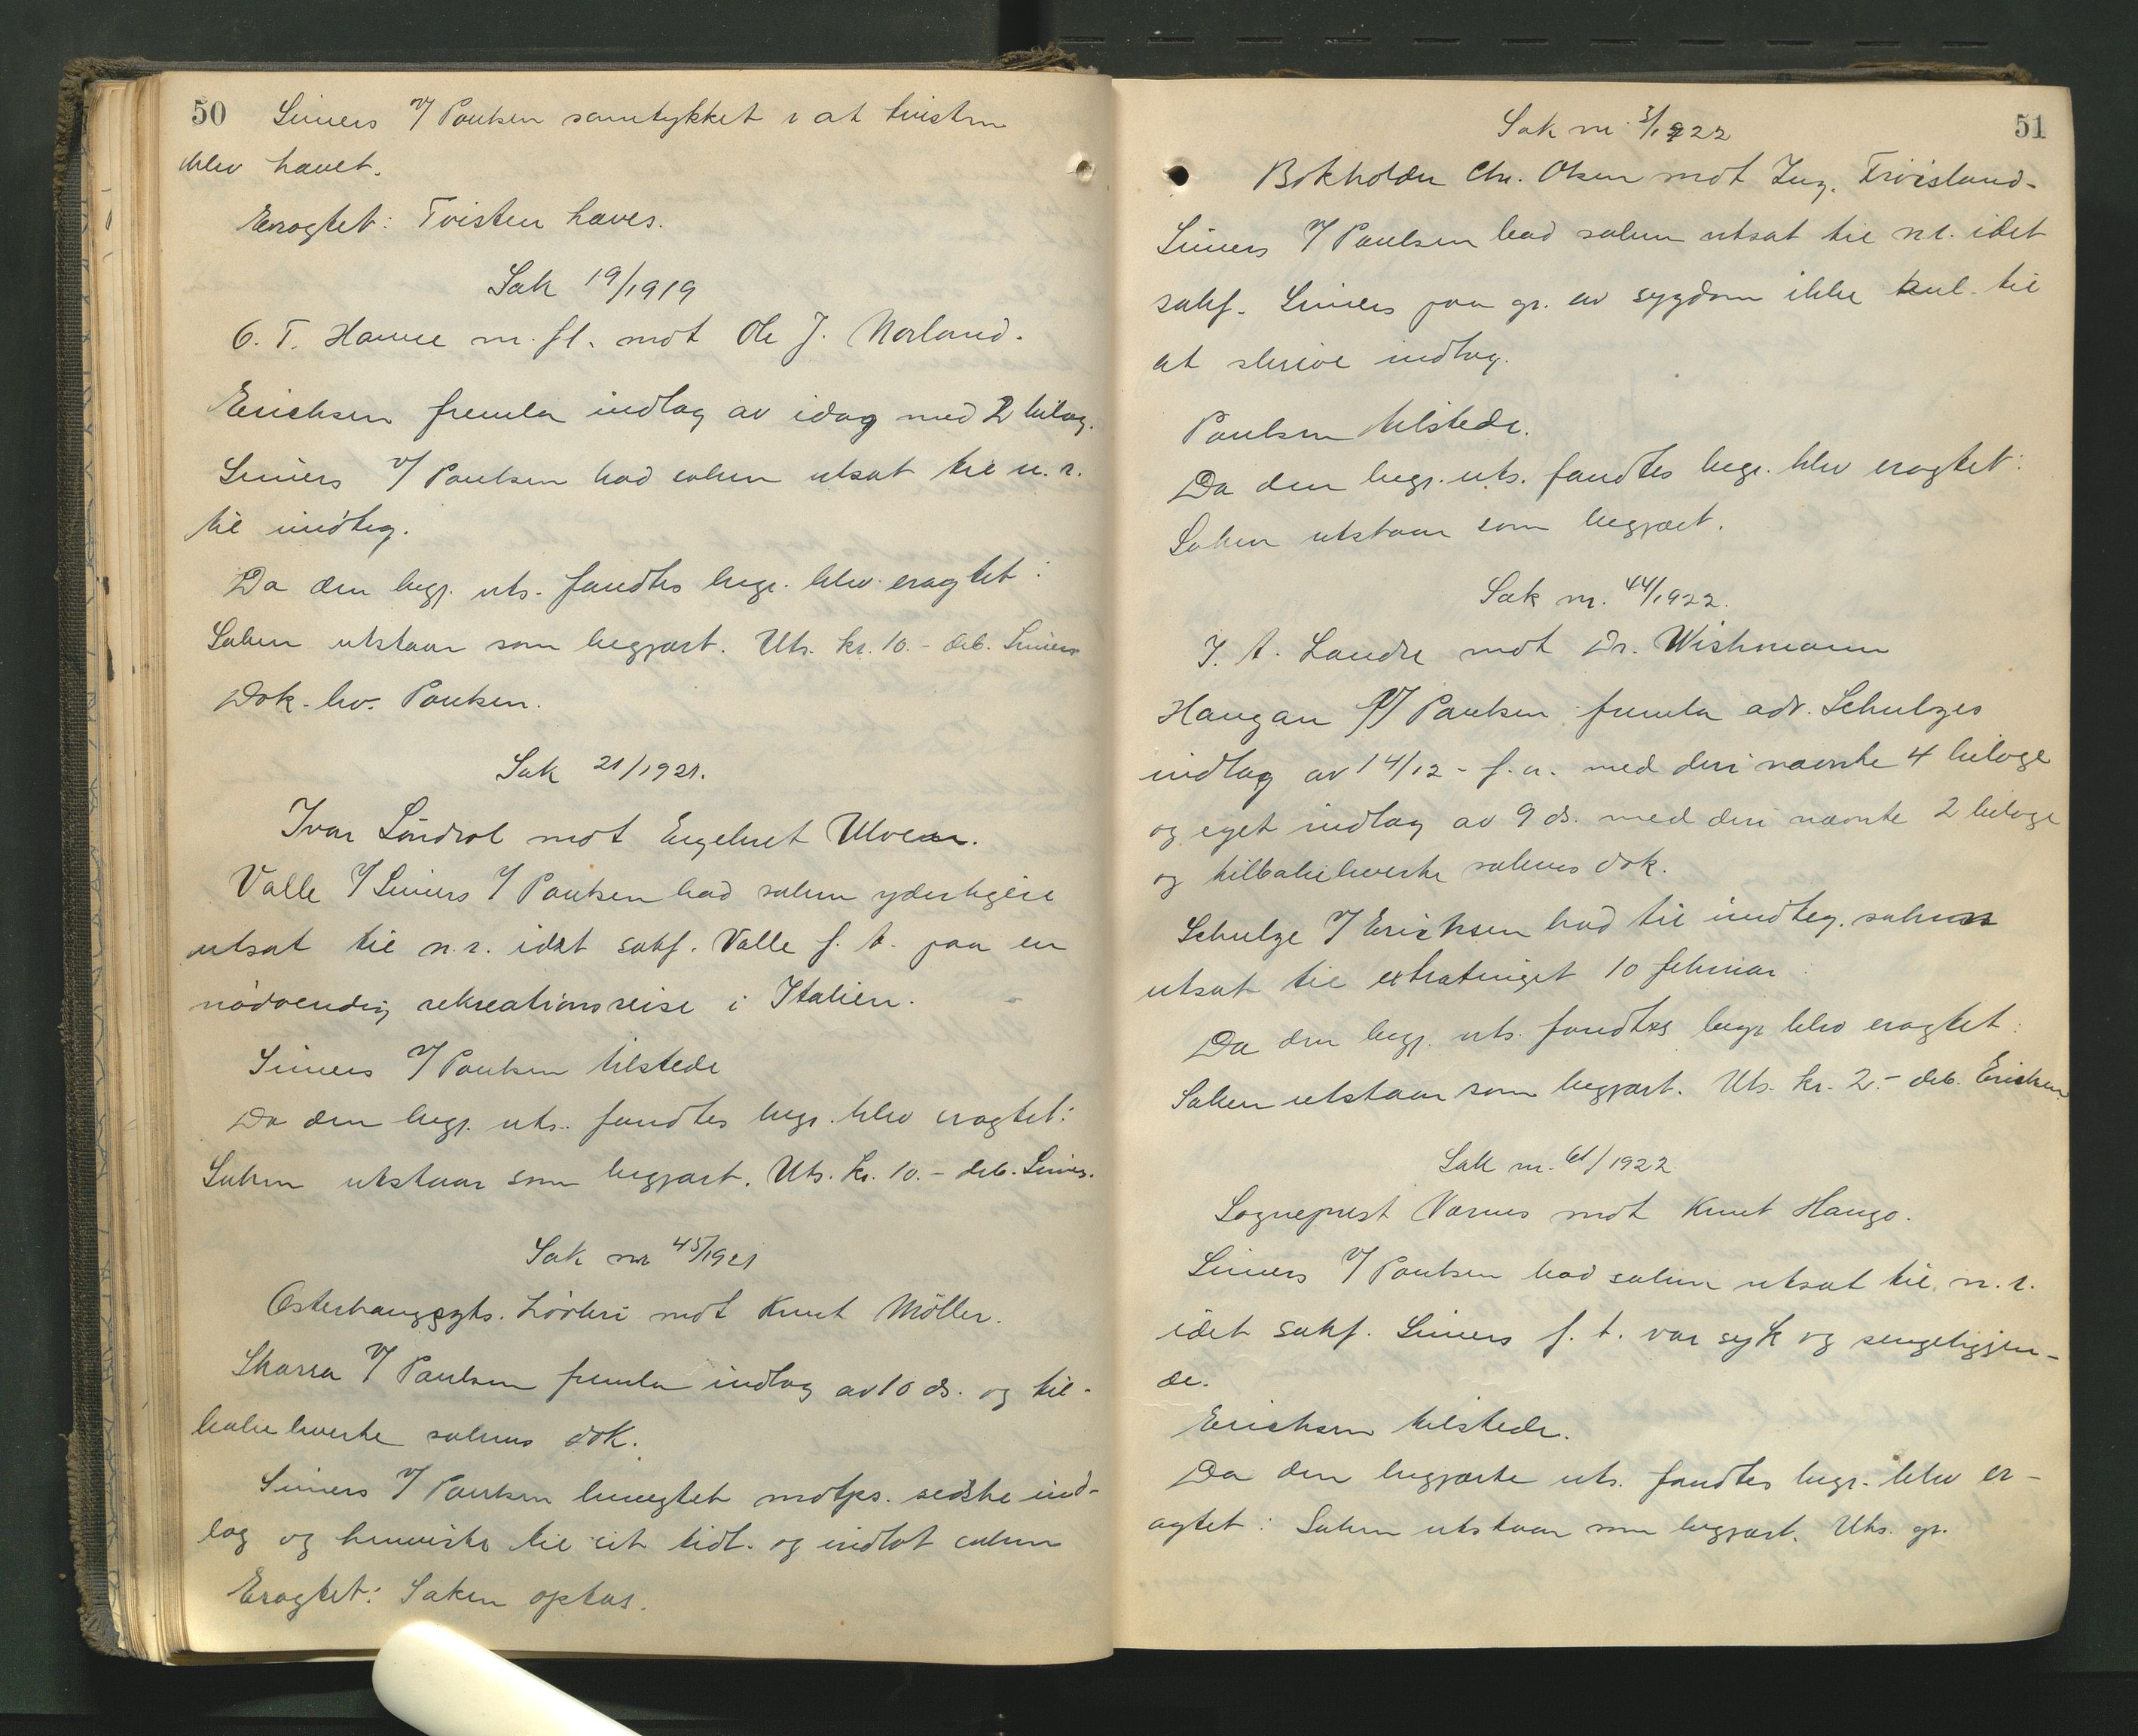 50 Siviers v/ Paulsen samtykket i at tvisten
blev hævet.
Eragtet: Tvisten hæves.
Sak 19/1919
O. T. Hauge m. fl. mot Ole J. Norland.
Erichsen fremla indlæg av idag med 2 bilag.
Siviers v/ Paulsen bad saken utsat til n. r.
til indlæg.
Da den begj. uts. fandtes begr. blev eragtet:
Saken utstaar som begjært. Uts. kr. 10.- deb. Siviers
Dok. lev. Paulsen.
Sak 21/1921.
Ivar Söndrol mot Engebret Ulvem.
Valle v/ Siviers v/ Paulsen bad saken yderligere
utsat til n. r. idet sakf. Valle f. t. paa en
nödvendig rekreationsreise i Italien.
Siviers v/ Paulsen tilstede
Da den begj. uts. fandtes begr. blev eragtet:
Saken utstaar som begjært. Uts. kr. 10.- deb. Sivies.
Sak nr 45/1921
mot Knut Möller.
Skarra v/ Paulsen fremla indlæg av 10 ds. og til-
bakeleverte sakens dok.
Siviers v/ Paulsen benegtet motps. sidste ind-
læg og henviste til sit tidl. og indlot saken
Eragtet: Saken optas.
Sak nr. 3/1922
51
Bokholder Chr. Olsen mot Ing. Tröisland.
Siviers v/ Paulsen bad saken utsat til n. r. idet
sakf. Siviers paa gr. av sygdom ikke til
at skrive indlæg.
Paulsen tilstede.
Da den begj. uts. fandtes begr. blev eragtet:
Saken utstaar som begjært.
Sak nr. 44/1922.
J. A. Landre mot Dr. Wishmann
Haugan v/ Paulsen fremla adv. Schulzes
indlæg av 14/12 - f. a. med deri nævnte 4 bilage
og eget indlæg av 9 ds. med deri nævnte 2 bilage
og tilbakeleverte sakens dok.
Schulze v/ Erichsen bad til indlæg. saken
utsat til extratinget 10 februar
Da den begj. uts. fandtes begr blev eragtet:
Saken utstaar som begjært. Uts. kr. 2.- deb. Erichsen
Sak nr. 61/1922
Sogneprest Værnes mot Knut Haugo.
Siviers v/ Paulsen bad saken utsat til n. r.
idet sakf. Siviers f. t. var syk og sengeliggen-
de.
Erichsen tilstede.
Da den begjærte uts. fandtes begr. blev er-
agtet: Saken utstaar som begjært. Uts. gr.